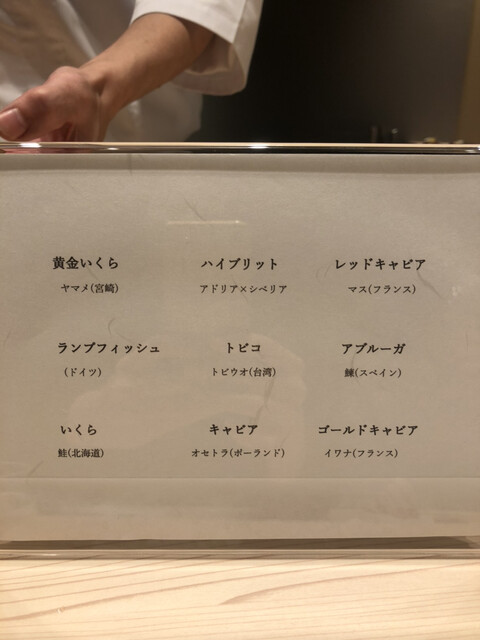 黄金いくら ハイブリット レッドキャビア
ヤマメ(宮崎) アドリア×シベリア マス(フランス)
ランプフィッシュ トビコ アブルーガ
(ドイツ) トビウオ(台湾) 鰊(スペイン)
いくら キャビア ゴールドキャビア
鮭(北海道) オセトラ(ポーランド) イワナ(フランス)